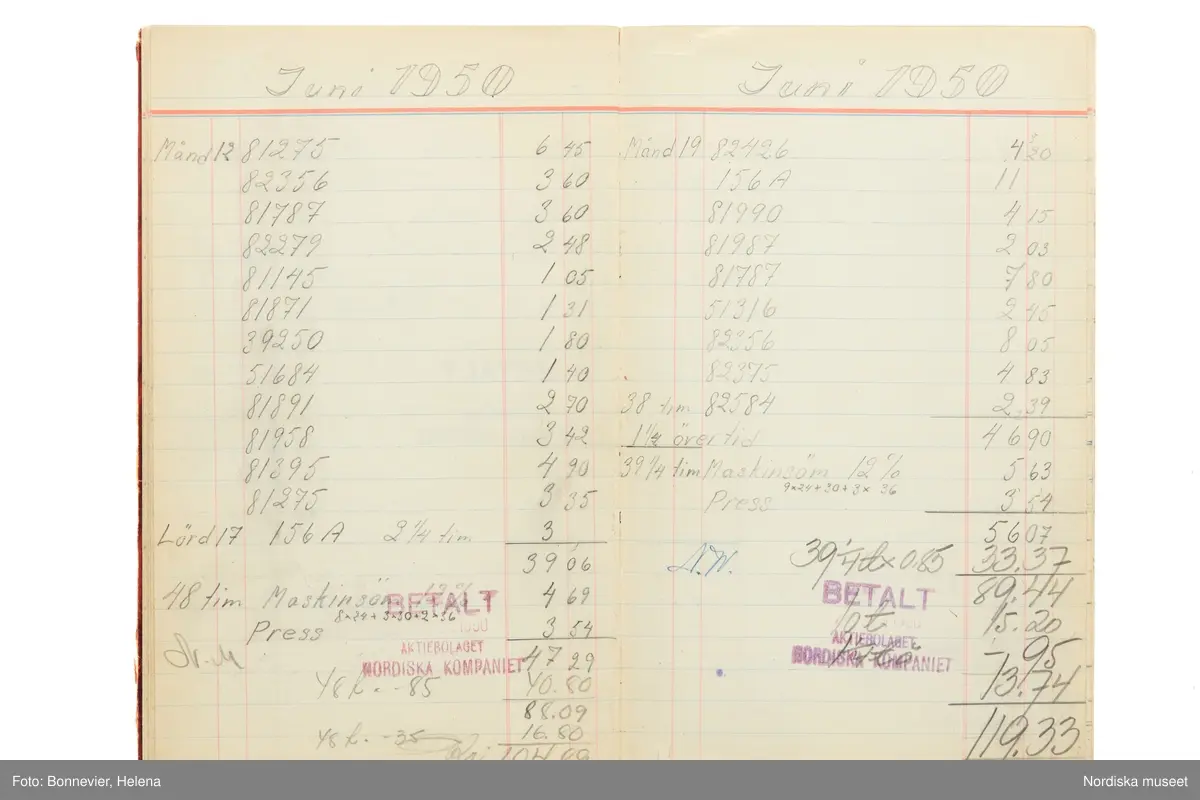 Juni 1950
Månd 12 81275 6 45
82356 3 60
81787 3 60
82279 2 48
81145 1 05
81871 1 31
39250 1 80
51684 1 40
81891 2 70
81958 3 42
81395 4 90
81275 3 35
Lörd 17 156 A 2 1/4 tim 3
39 06
48 tim Maskinsöm 12% 4 69
8×24+3×30+2×36
Press 3 54
BETALT
AKTIEBOLAGET
NORDISKA KOMPANIET
47 29
48 t. -85 40.80
88.09
48 t. -35 16.80
Juni 1950
Månd 19 82426 4 20
156 A 11
81990 4 15
81987 2 03
81787 7 80
51316 2 45
82356 8 05
82375 4 83
38 tim 82584 2,39
1 1/4 övertid 46 90
39 1/4 tim Maskinsöm 12% 5 63
9×24+30+3×36
Press 3 54
56 07
N.W. 39 1/4 t × 0.85 33.37
89.44
BETALT
15.20
AKTIEBOLAGET
NORDISKA KOMPANIET
-95
13.74
119.33
Foto: Bonnevier, Helena
Nordiska museet